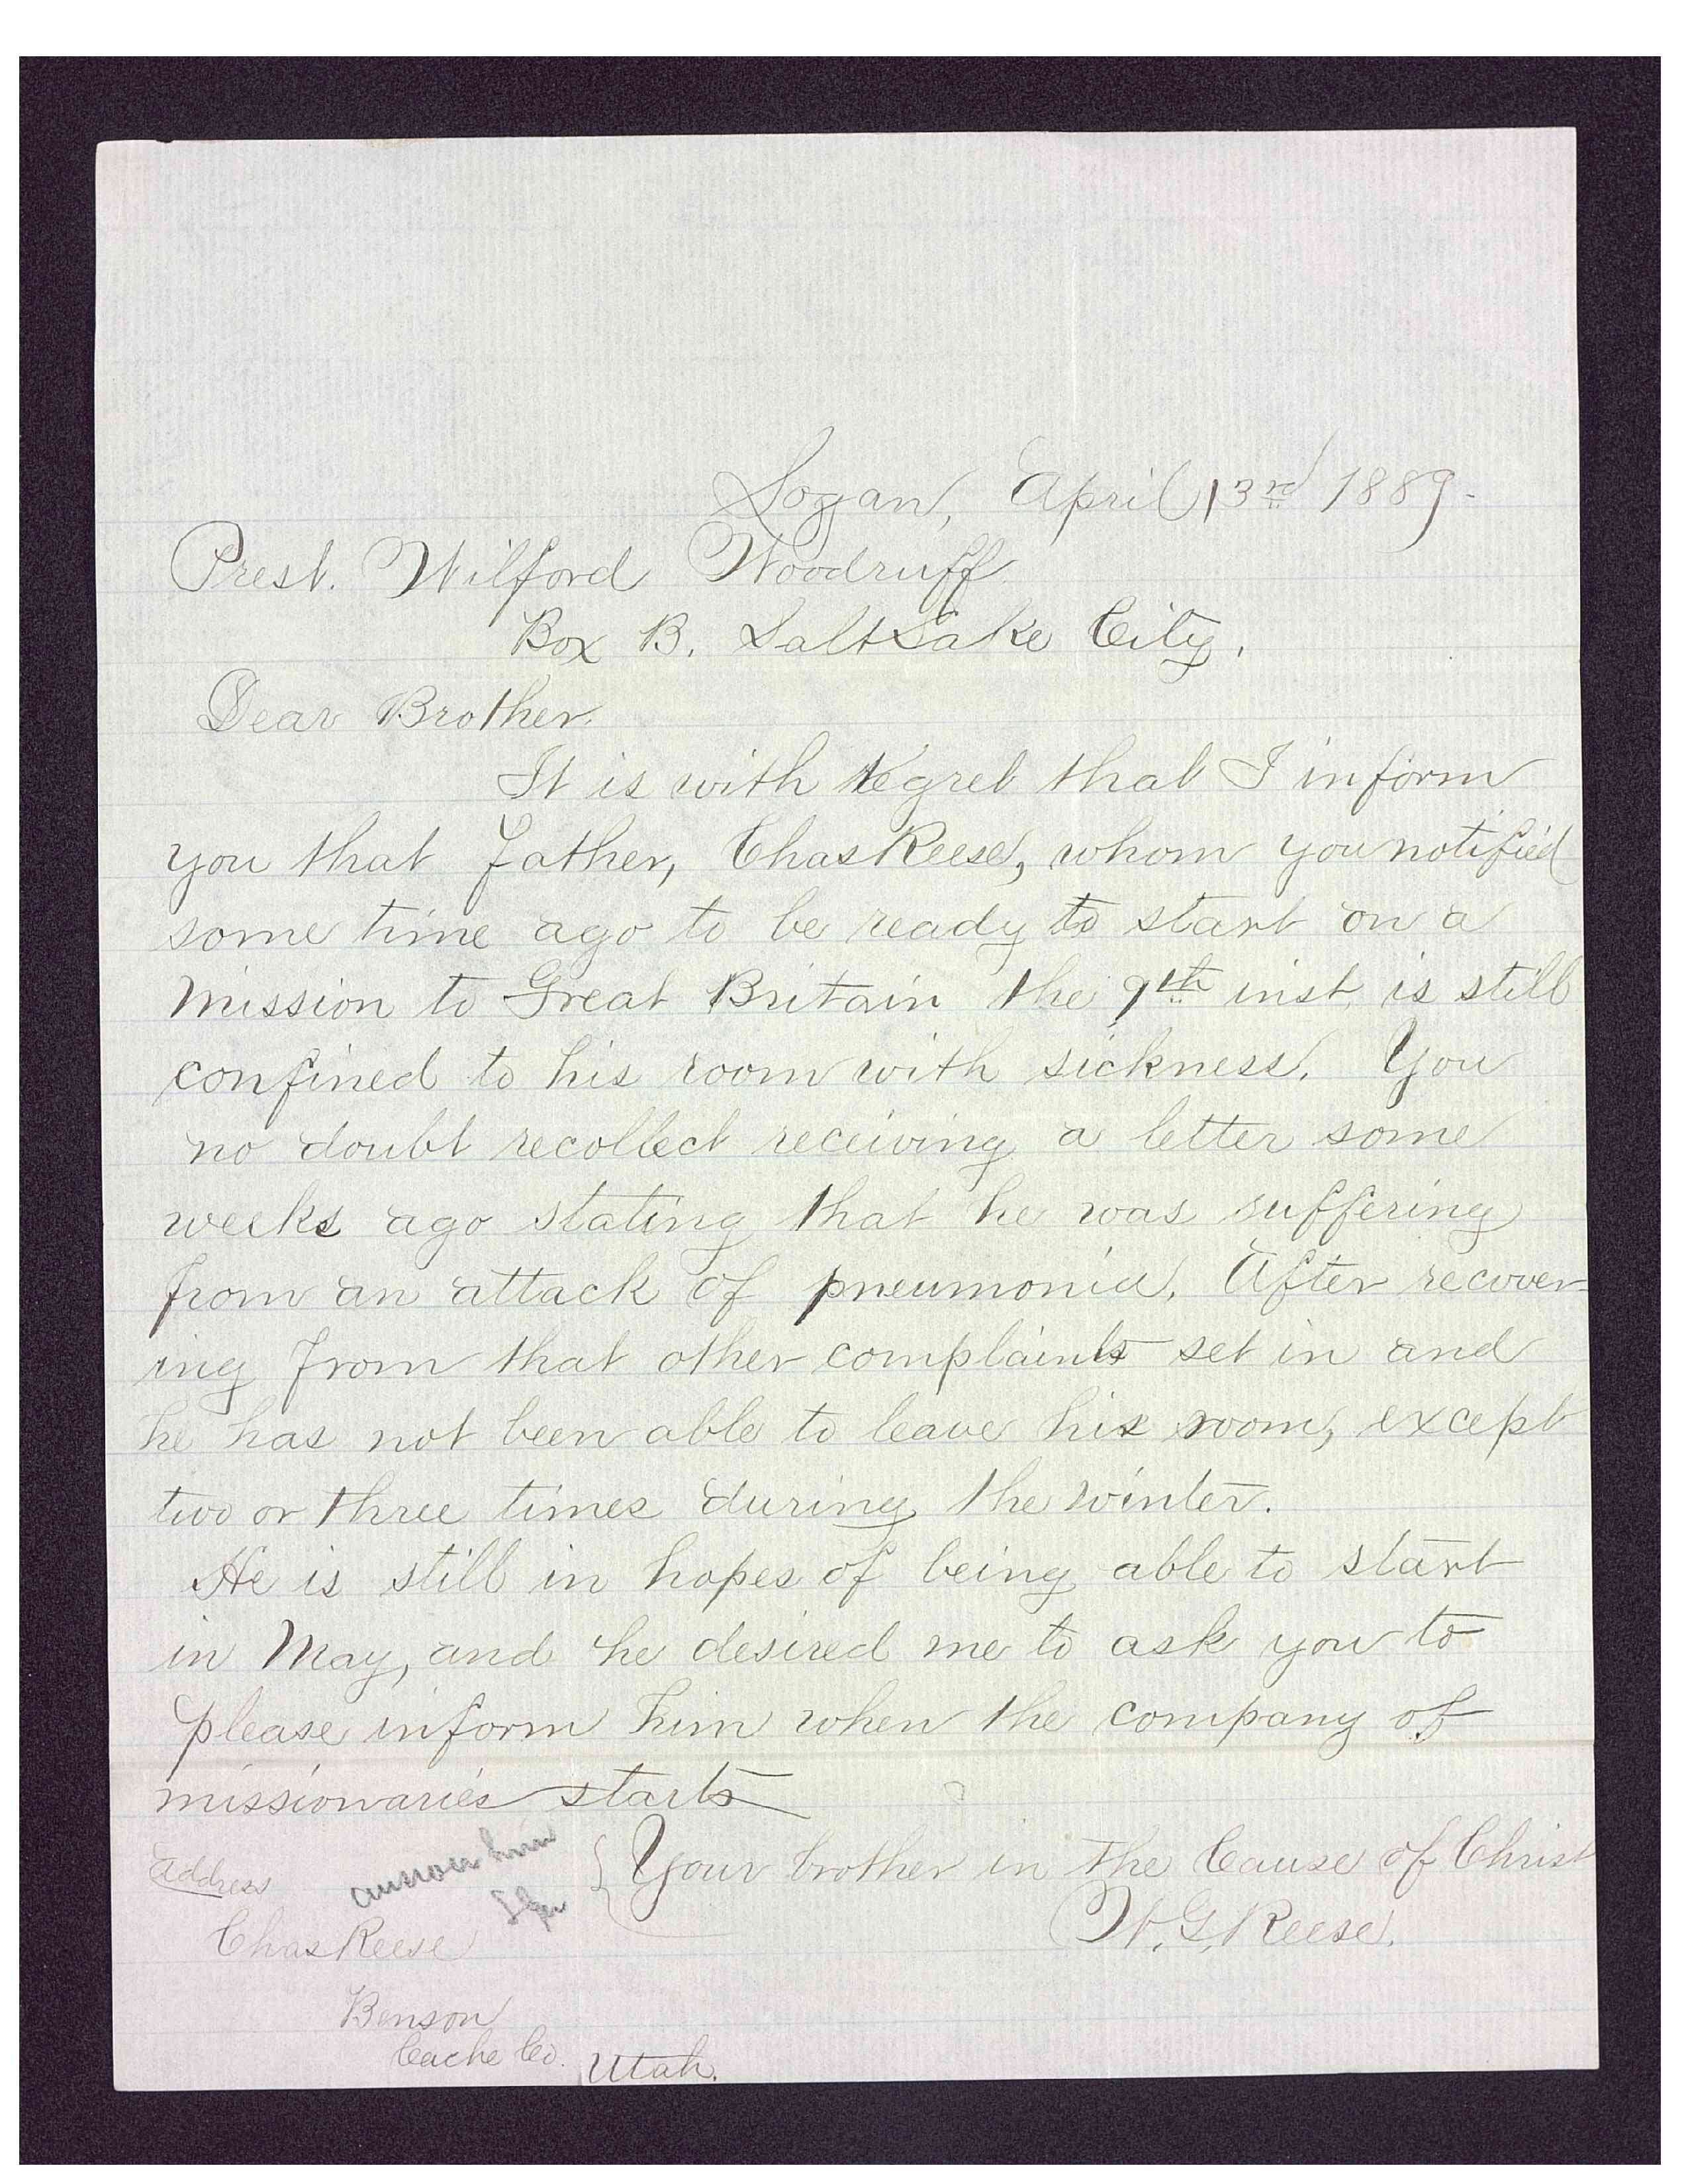 Logan, April 13rd 1889-
Prest. Wilford Woodruff
Box B. Salt Lake City.
Dear Brother.
It is with regret that I inform
you that father, Chas Reese, whom you notified
some time ago to be ready to start on a
mission to Great Britain the 9th inst. is still
confined to his room with sickness. You
no doubt recollect receiving a letter some
weeks ago stating that he was suffering
from an attack of pneumonia. After recover-
ing from that other complaints set in and
he has not been able to leave his room, except
two or three times during the winter.
He is still in hopes of being able to start
in May, and he desired me to ask you to
please inform him when the company of
missionaries starts
Your brother in the Cause of Christ
W. G. Reese.
Address
answer him
Chas Reese
Benson
Cache Co. Utah.